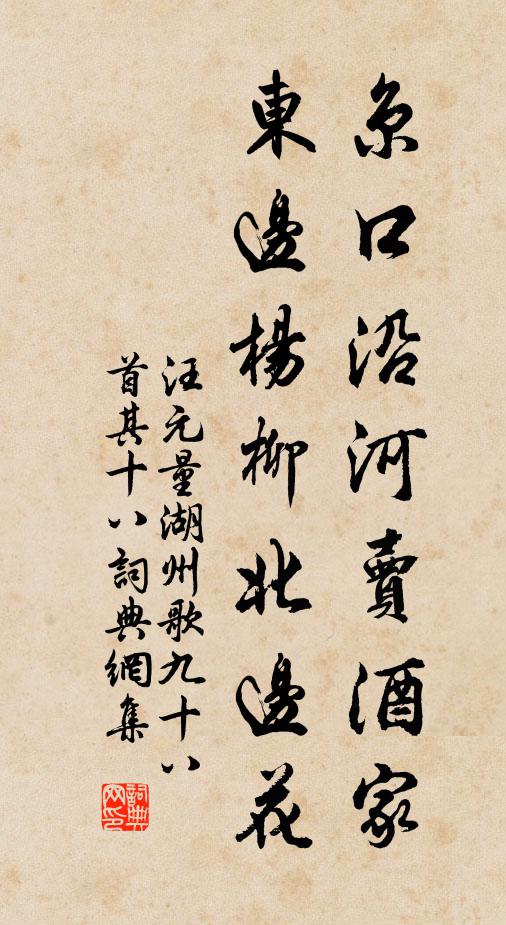 京口沿河賣酒家
東邊楊柳北邊花
汪元量湖州歌九十八
首其十八詞典網集
詞典网印